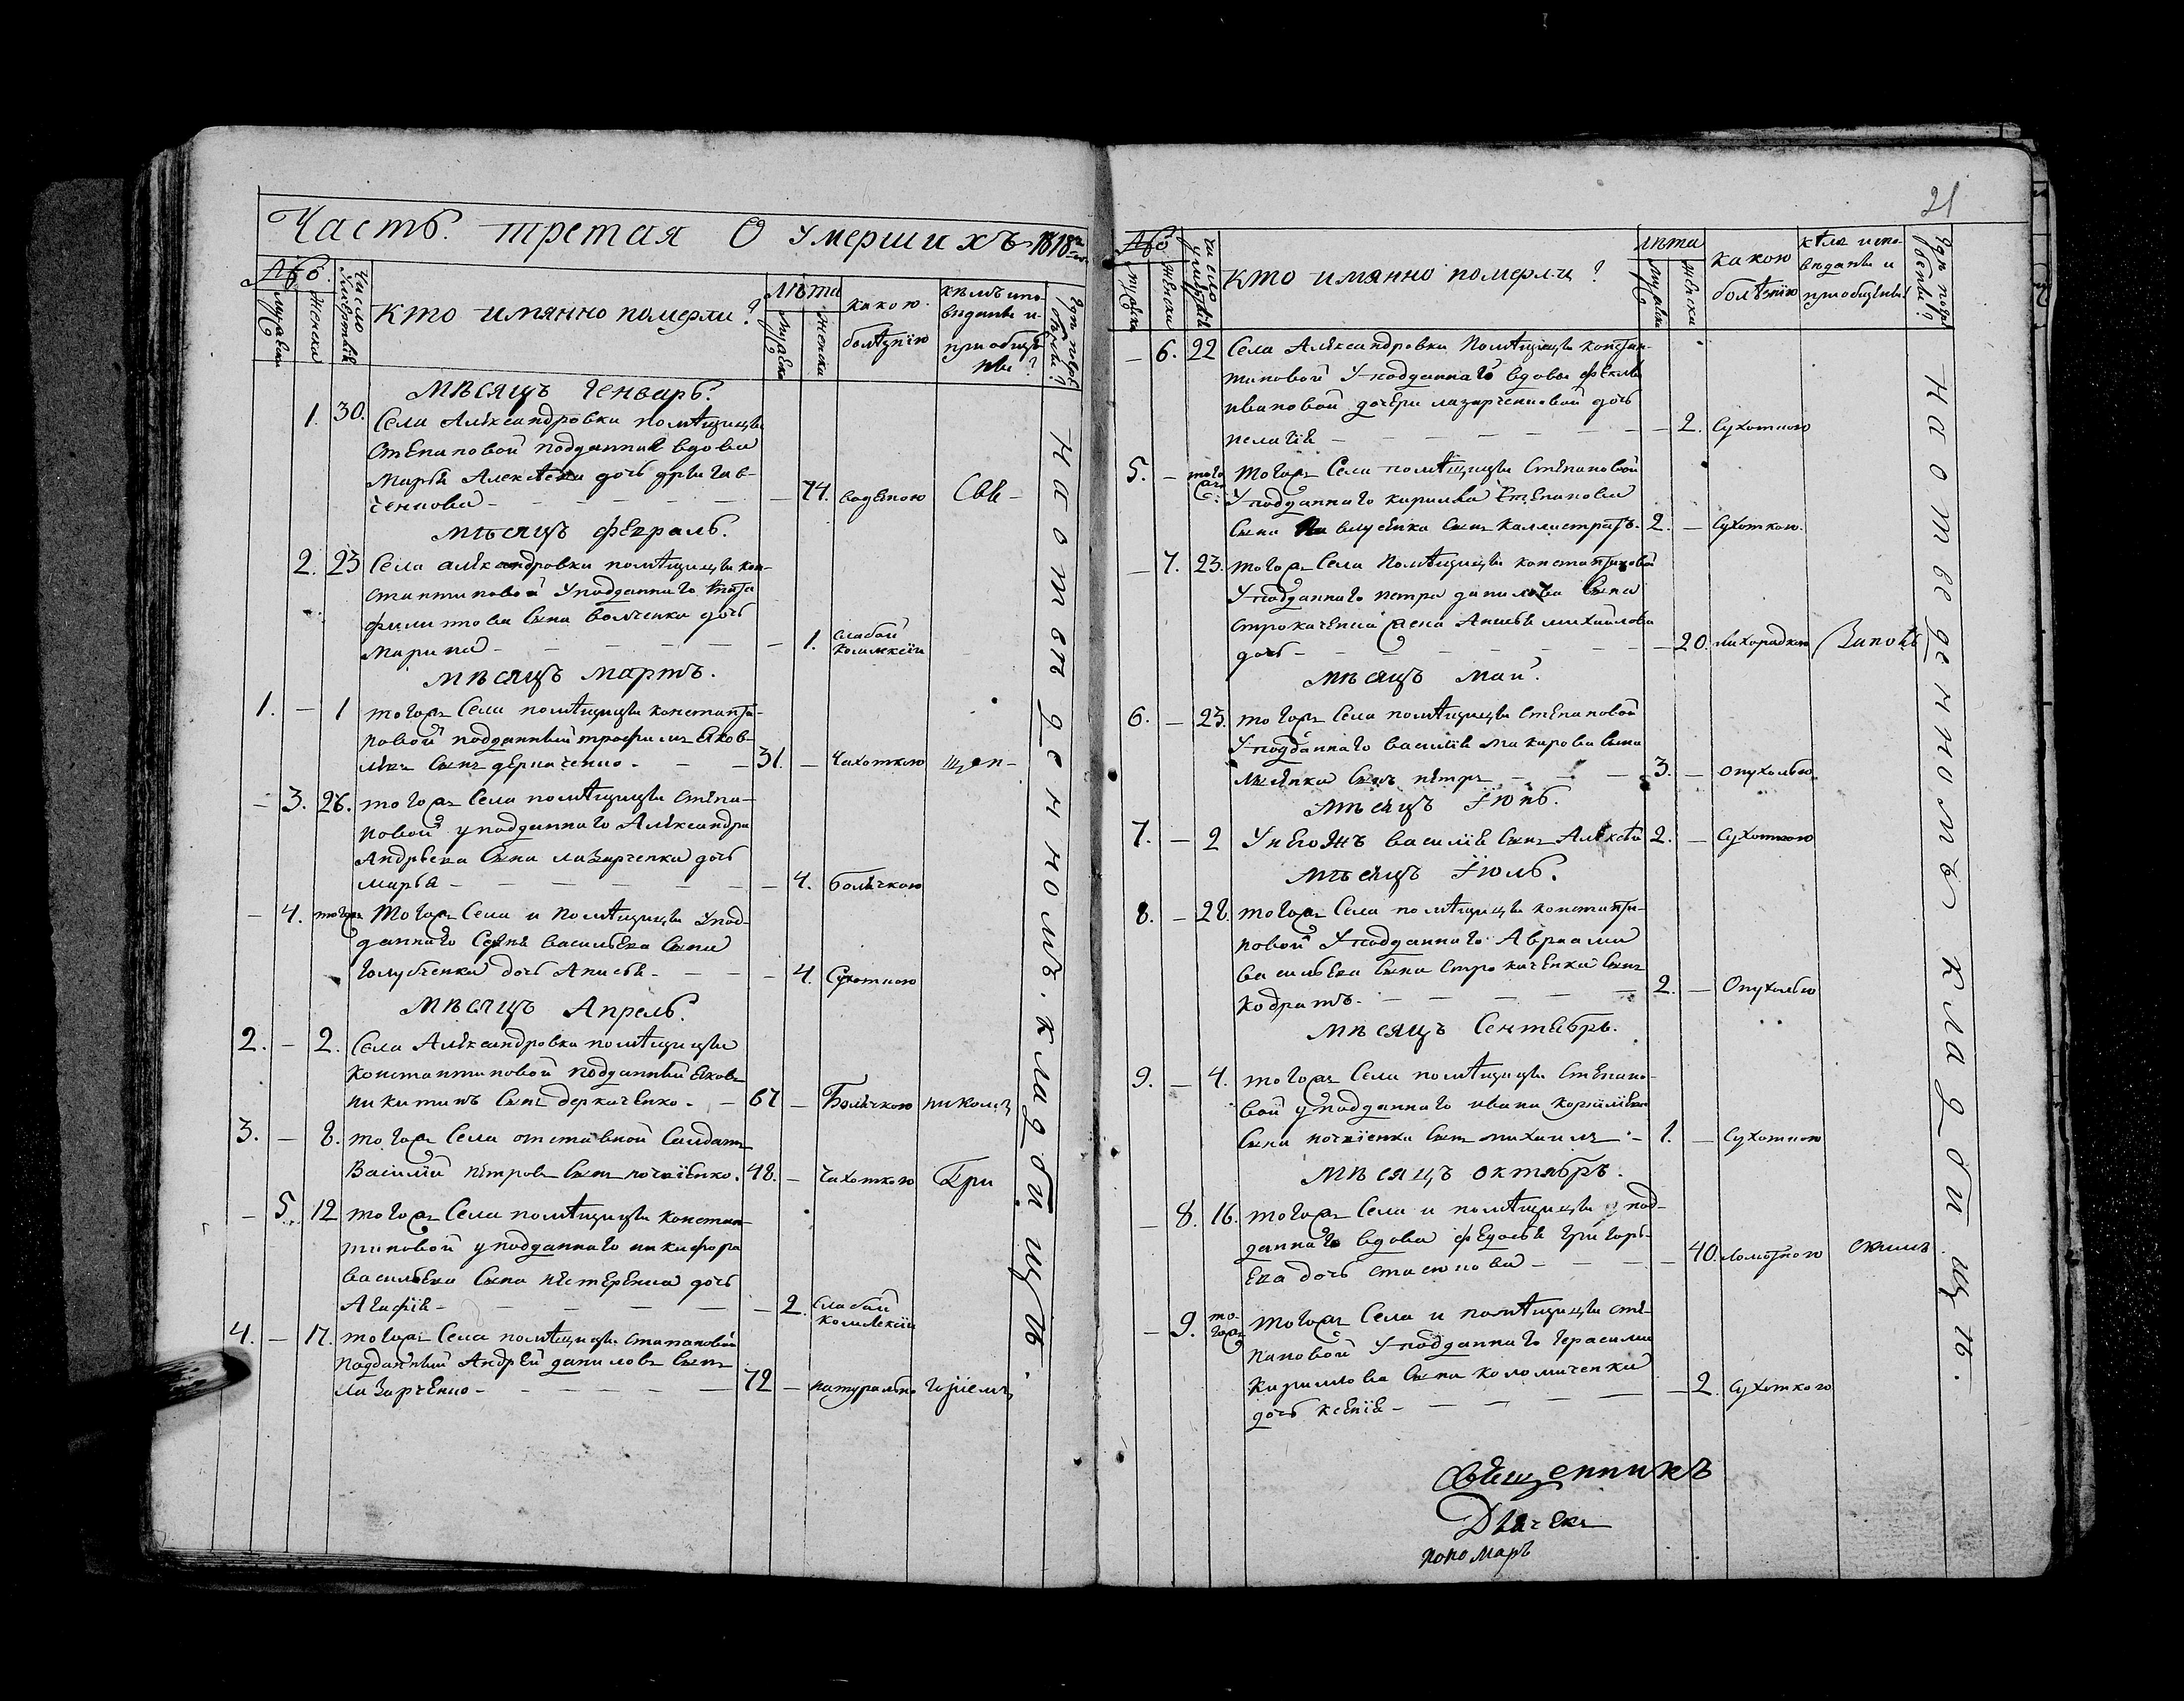 Часть третая О умершихъ 1818
Число умертвія
Мужеска
Женска
Кто имянно померли?
Лѣта
Мужеска
Женска
какою
болѣзнію
кѣмъ испо-
вѣданы и
приобще-
ны?
Мѣсяцъ Генварь.
1. 30. Села Александровки помѣщицы
Степановой подданная вдова
Марья Алексѣева дочь
— 74. Сов-
Мѣсяцъ Февраль.
2. 23 Села александровки помѣщицы кон-
стантиновой у подданнаго
филиппова сына волченка дочь
Марина — 1. слабой
комлекціи
Мѣсяцъ Мартъ.
1. — 1 тогожъ Села помѣщицы константи-
новой подданный трофимъ Яков-
левъ сынъ деркаченко — 31. — Чахоткою
— 3. 26. тогожъ Села помѣщицы степа-
новой у подданнаго Александра
Андрѣева сына лазарченка дочь
марья — 4. Болячкою
— 4. тогожъ Тогожъ Села и помѣщицы у под-
даннаго васильева сына
голубченка дочь Анисья — 4. Сухоткою
Мѣсяцъ Апрель.
2. — 2. Села Александровки помѣщицы
Константиновой подданный Яковъ
никитинъ сынъ деркаченко — 67 — Болячкою
3. — 8. тогожъ Села отставной Салдатъ
Василій петровъ сынъ 48. — Чахоткою
— 5. 12 тогожъ Села помѣщицы констан-
тиновой у подданнаго никифора
васильева сына нестеренка дочь
Агафія — 2. слабой
комлекціи
4. — 17. тогожъ Села помѣщицы степановой
подданный Андрей даниловъ сынъ
лазарченко — 72 — натурально
На отведенномъ кладбищѣ.
21
Число умертвія
Мужеска
Женска
Кто имянно померли?
лѣта
Мужеска
Женска
какою
болѣзнію
кѣмъ испо-
вѣданы и
приобщены?
— 6. 22 Села Александровки Помѣщицы констан-
тиновой у подданнаго вдовы феклы
ивановой дочери лазарченковой дочь
пелагія — 2. Сухоткою
5. — тогожъ Тогожъ Села помѣщицы Степановой
у подданнаго кирилла Степанова
сына сынъ Каллистратъ. 2. — Сухоткою.
— 7. 23. тогожъ Села Помѣщицы константиновой
у подданнаго петра данилова сына
строкаченка жена Анисья михайлова
дочь — 20. лихорадкою
Мѣсяцъ Май.
6. — 23. тогожъ Села помѣщицы Степановой
у подданнаго василія макарова сына
сынъ петръ — 3. — опухолью
Мѣсяцъ Іюнь.
7. — 2 у негожъ василія сынъ Алексѣй 2. — Сухоткою
Мѣсяцъ Іюль.
8. — 28. тогожъ Села помѣщицы константи-
новой у подданнаго Авраама
васильева сына строкаченка сынъ
Кодратъ — 2. — Опухолью
Мѣсяцъ Сентябрь.
9. — 4. тогожъ Села помѣщицы степано-
вой у подданнаго ивана корнилієва
сына сынъ михаилъ — 1. — Сухоткою
Мѣсяцъ октябрь.
— 8. 16. тогожъ Села и помѣщицы у под-
даннаго вдова федосья григорь-
ева дочь — 40. ломотною
— 9. тогожъ Тогожъ Села и помѣщицы сте-
пановой у подданнаго герасима
кириллова сына коломиченка
дочь ксенія — 2. Сухоткою
На отведенномъ кладбищѣ.
Священникъ
Дьячекъ
пономарь